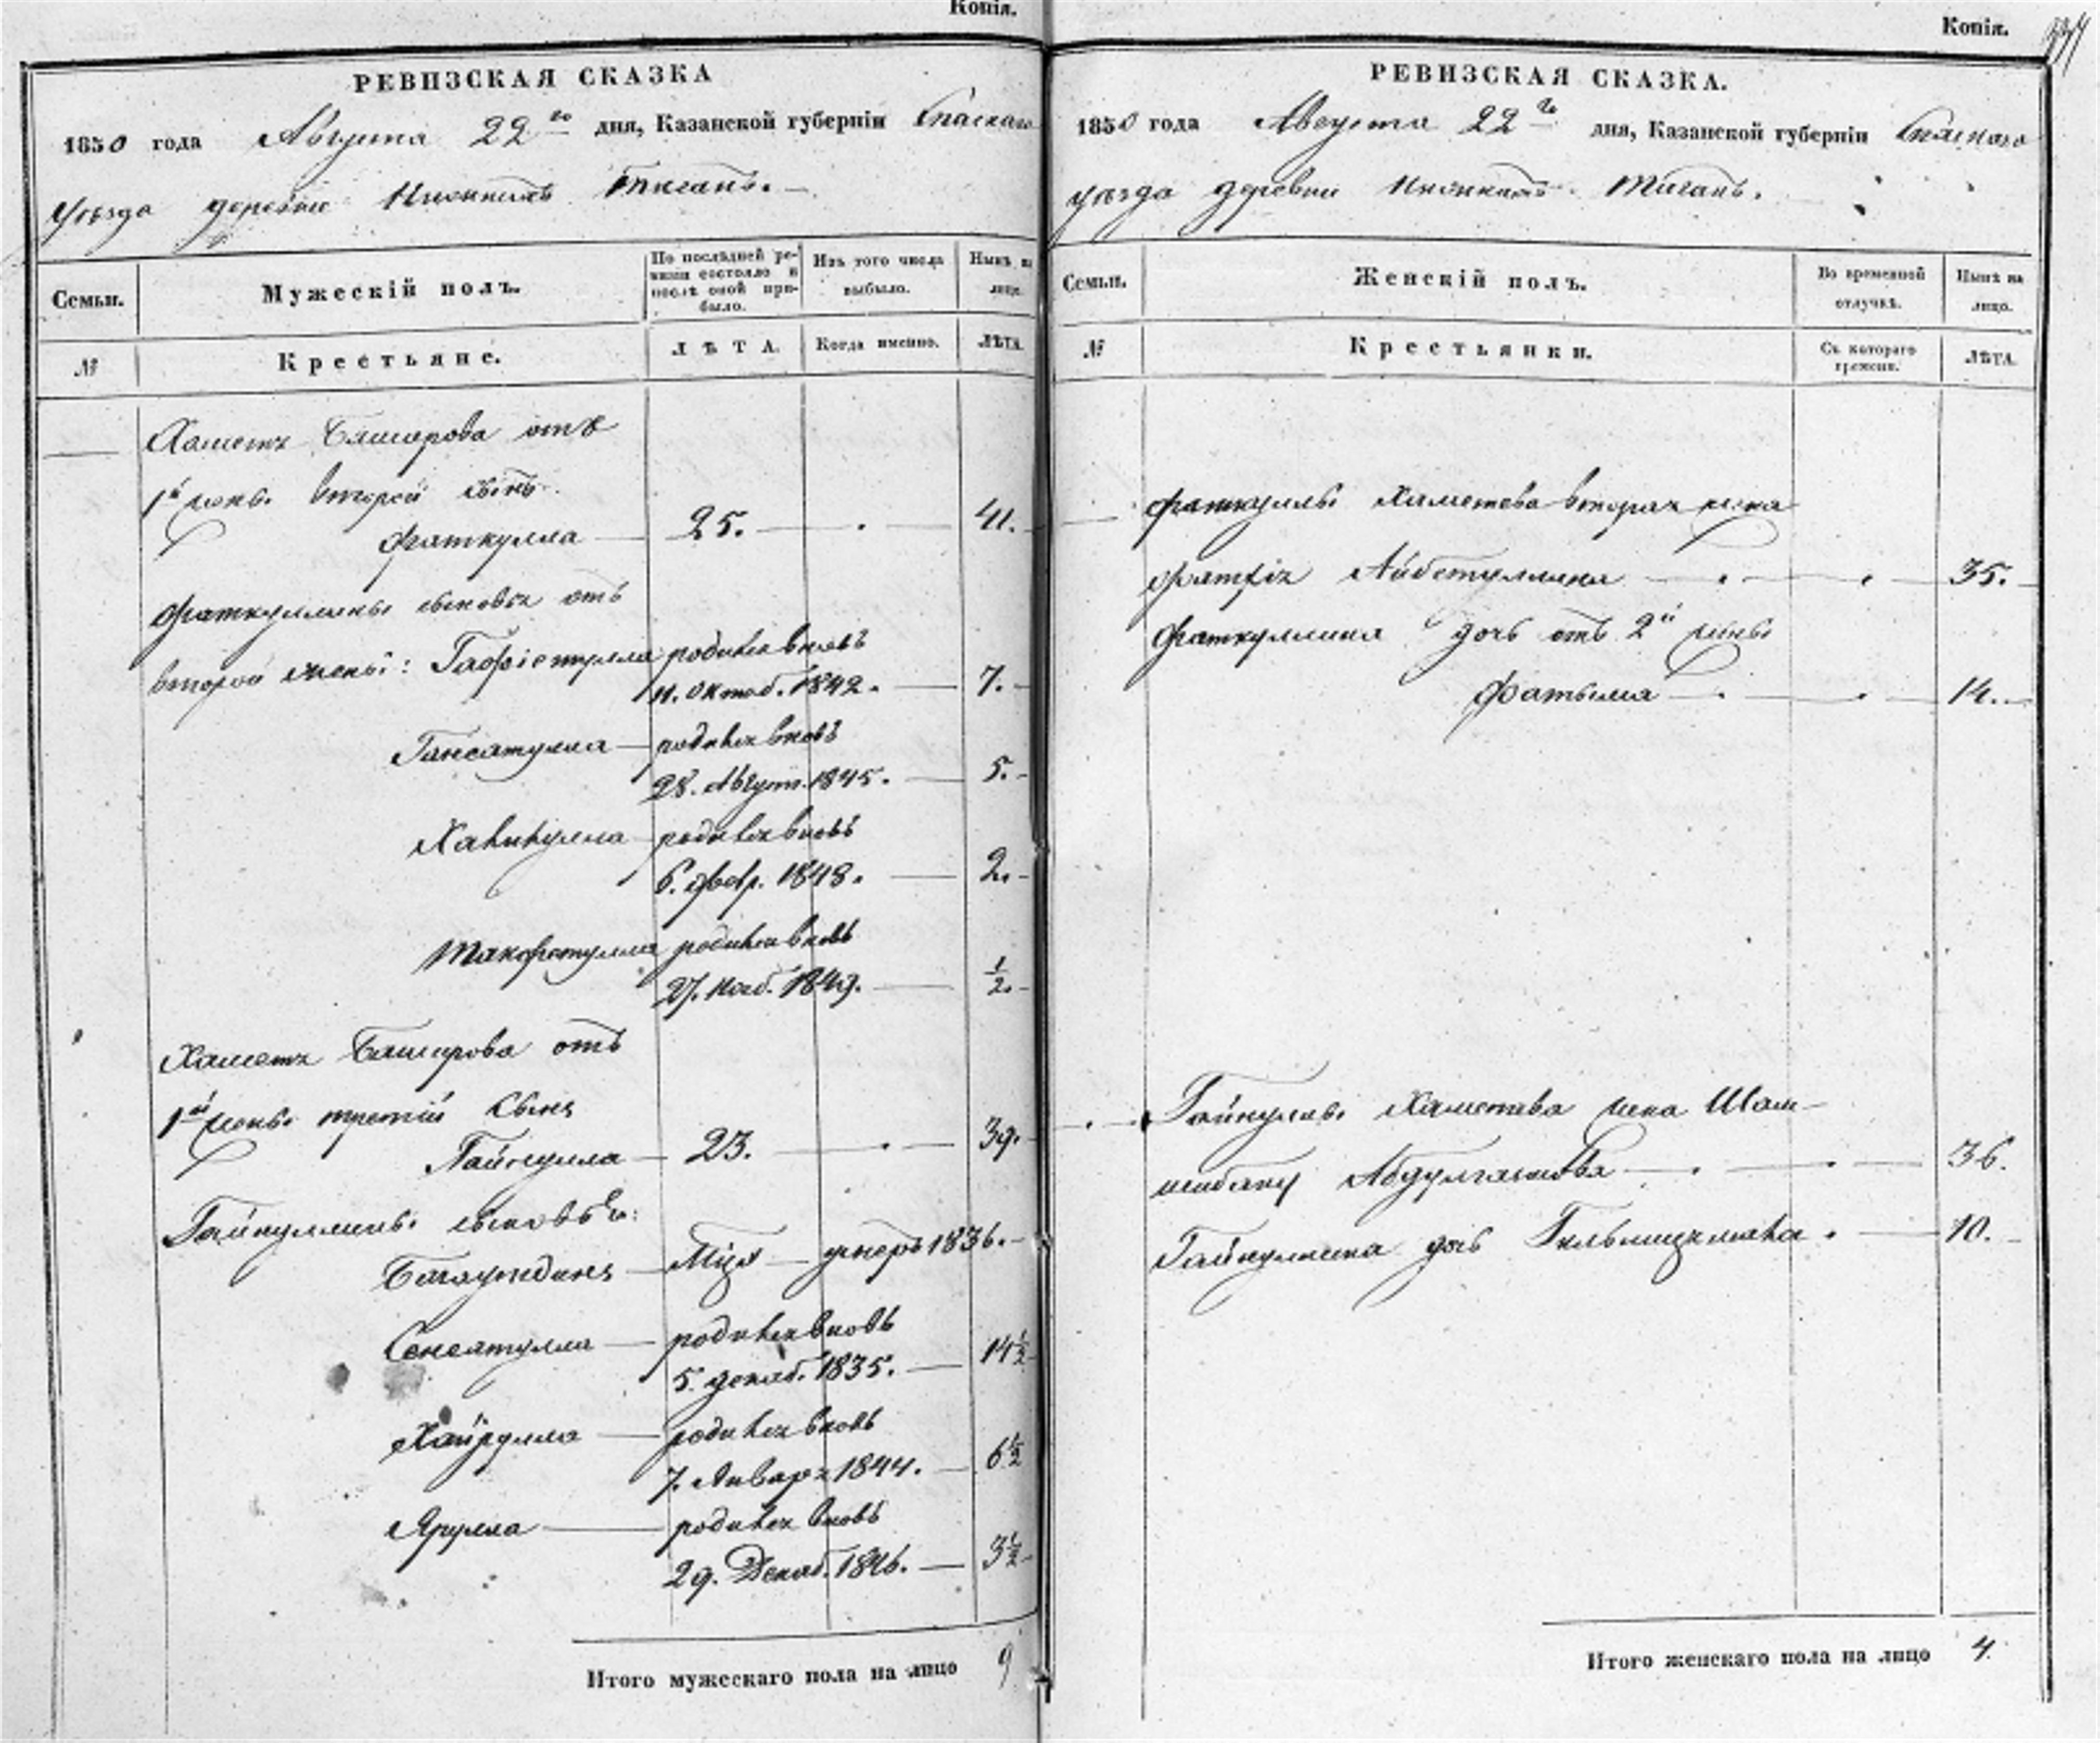 Копія.
РЕВИЗСКАЯ СКАЗКА
1850 года Августа 22го дня, Казанской губерніи Спаскаго
уѣзда деревни Тиганъ.
Семьи.
Мужескій полъ.
По послѣдней ре-
визіи состояло и
послѣ оной при-
было.
Изъ того числа
выбыло.
Нынѣ на
лицо.
№
Крестьяне.
ЛѢТА.
Когда именно.
ЛѢТА.
Хаметя Баширова отъ
1й жены второй сынъ
Фаткулла 25. 41.
Фаткуллины сыновья отъ
второй жены: Гафіетулла родился вновь
11. Октяб. 1842. 7.
Гансатулла родился вновь
28. Август. 1845. 5.
Хабибулла родился вновь
6. Февр. 1848. 2.
родился вновь
27. Нояб. 1849. 1/2.
Хаметя Баширова отъ
1й жены третій сынъ
Гайнулла 23. 39.
Гайнуллины сыновья:
Багаутдинъ умеръ 1836.
родился вновь
5. декаб. 1835. 14 1/2
Хайрулла родился вновь
7. Января 1844. 6 1/2
Ярулла родился вновь
29. Декаб. 1846. 3 1/2
Итого мужескаго пола на лицо 9
Копія.
РЕВИЗСКАЯ СКАЗКА.
1850 года Августа 22го дня, Казанской губерніи Спаскаго
уѣзда деревни Тиганъ.
Семьи.
Женскій полъ.
Во временной
отлучкѣ.
Нынѣ на
лицо.
№
Крестьянки.
Съ котораго
времени.
ЛѢТА.
Фаткуллы Хаметева вторая жена
Айбетуллина 35.
Фаткуллина дочь отъ 2й жены
Фатыма 14.
Гайнуллы Хаметева жена Шам-
36.
Гайнуллина дочь 10.
Итого женскаго пола на лицо 4.